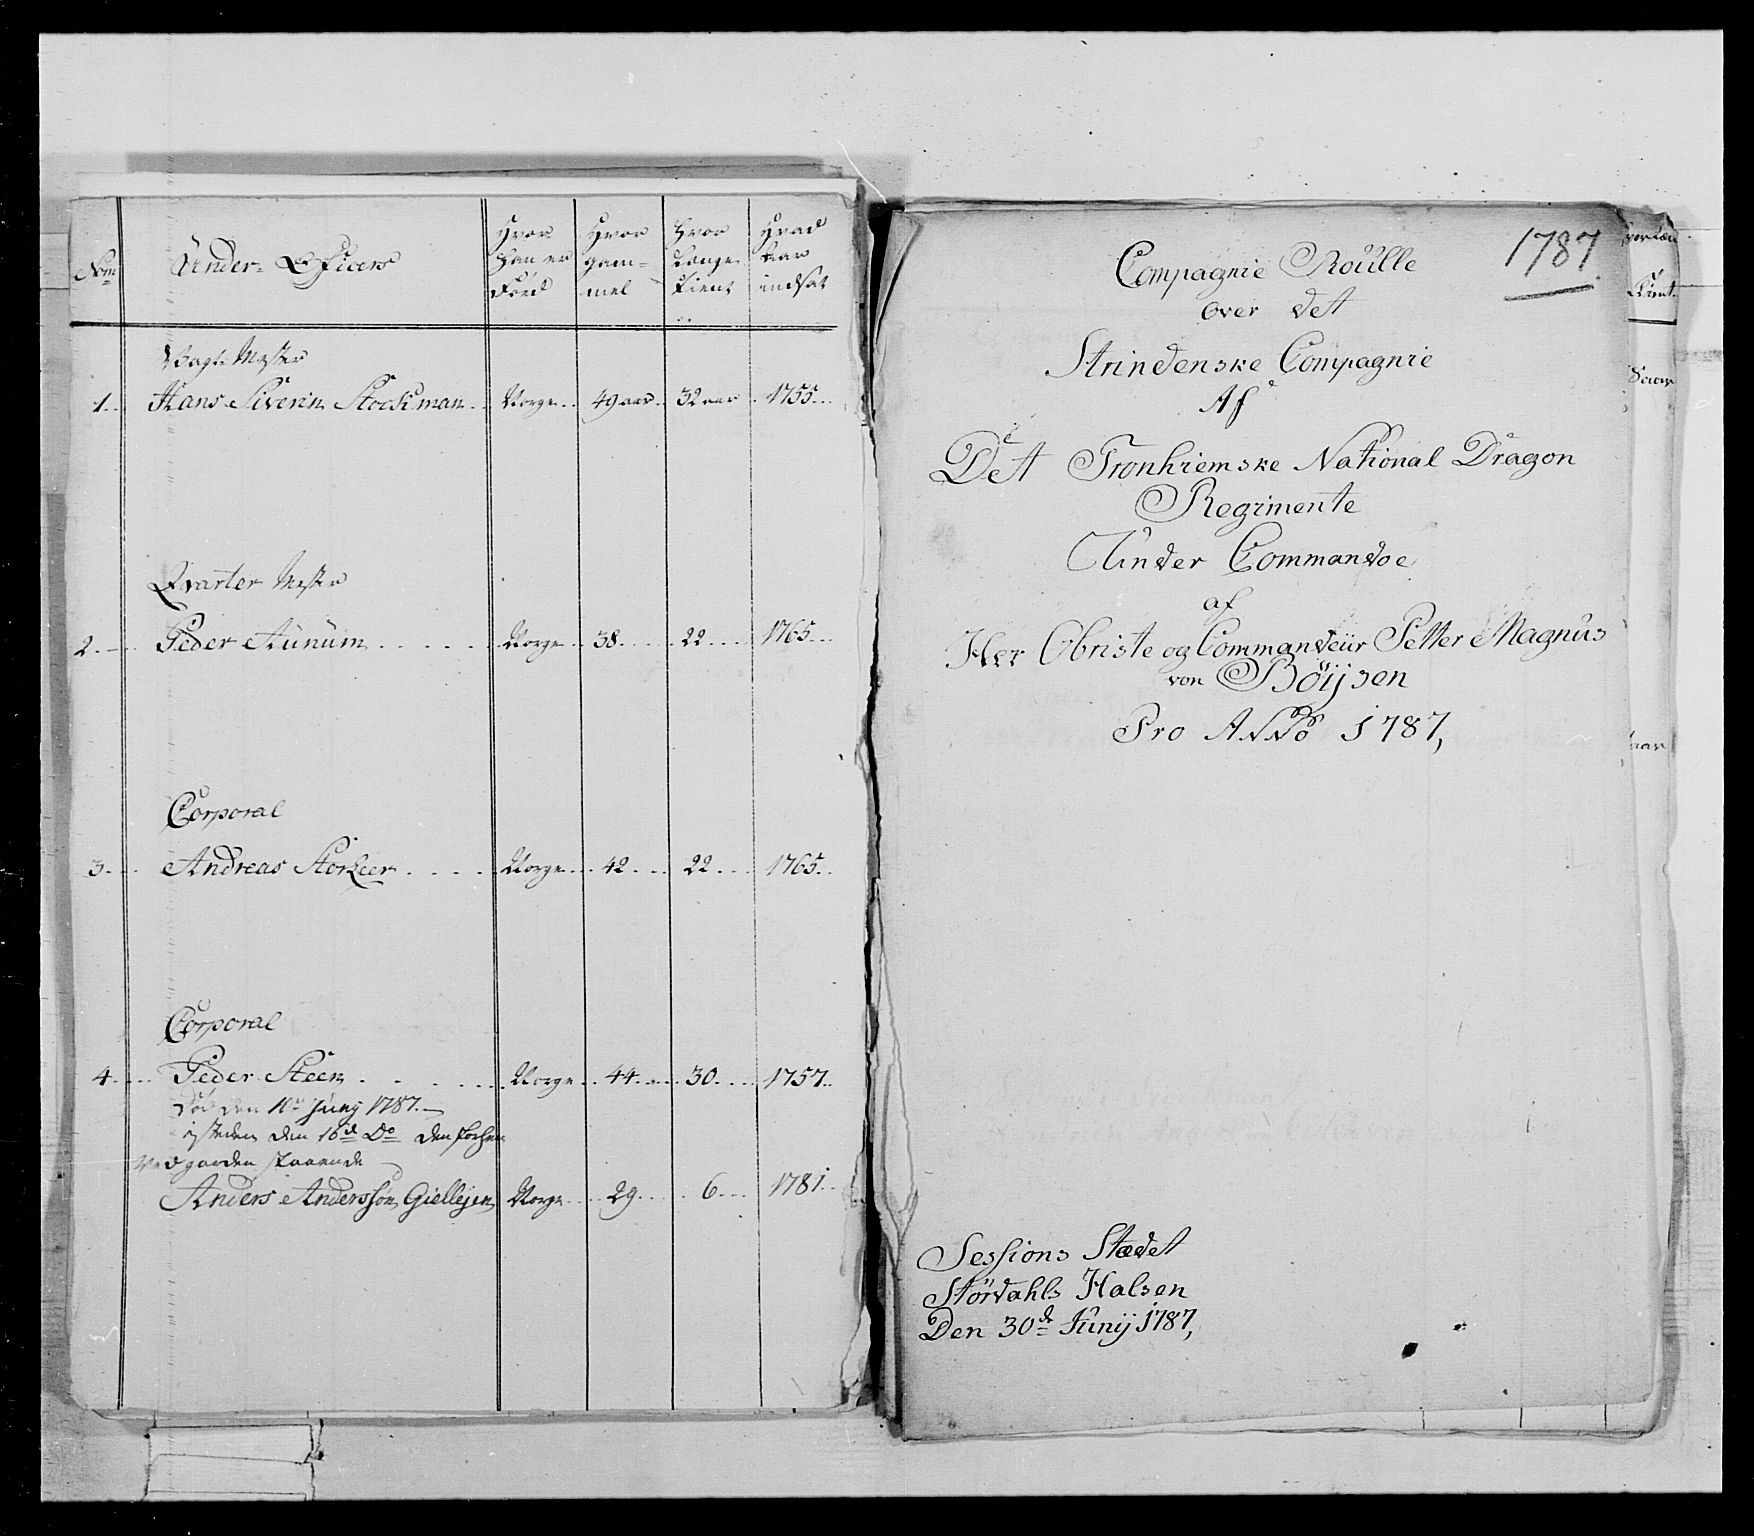 Nom
Under Officers
Hvor Han er Föed
Hvor gam= mel
Hvor Længe Tient
Hvad Aar indsat
Vagt Mester
1. Hans Siverin Stockman Norge 49 aar 32 aar 1755
Qvarter Mester
2. Peder Aunum Norge 38 22 1765
Corporal
3. Andreas Storkeer Norge 42 22 1765
Corporal
4. Peder Steen Norge 44 30 1757
Död den 10de Junij 1787.
isteden den 16de Do den forhen
Ved garden staaende
Anders Anderssön Giellejen Norge 29 6 1781
1787
Compagnie Roulle
over det
Strindenske Compagnie
Af
Det Tronhiemske National Dragon
Regimente
Under Commandoe
af
Her Obriste og Commandeur Petter Magnus
von Böijsen
Pro Anno 1787,
Sessions Stædet
Stördahls Halsen
Den 30de Junij 1787,
aar